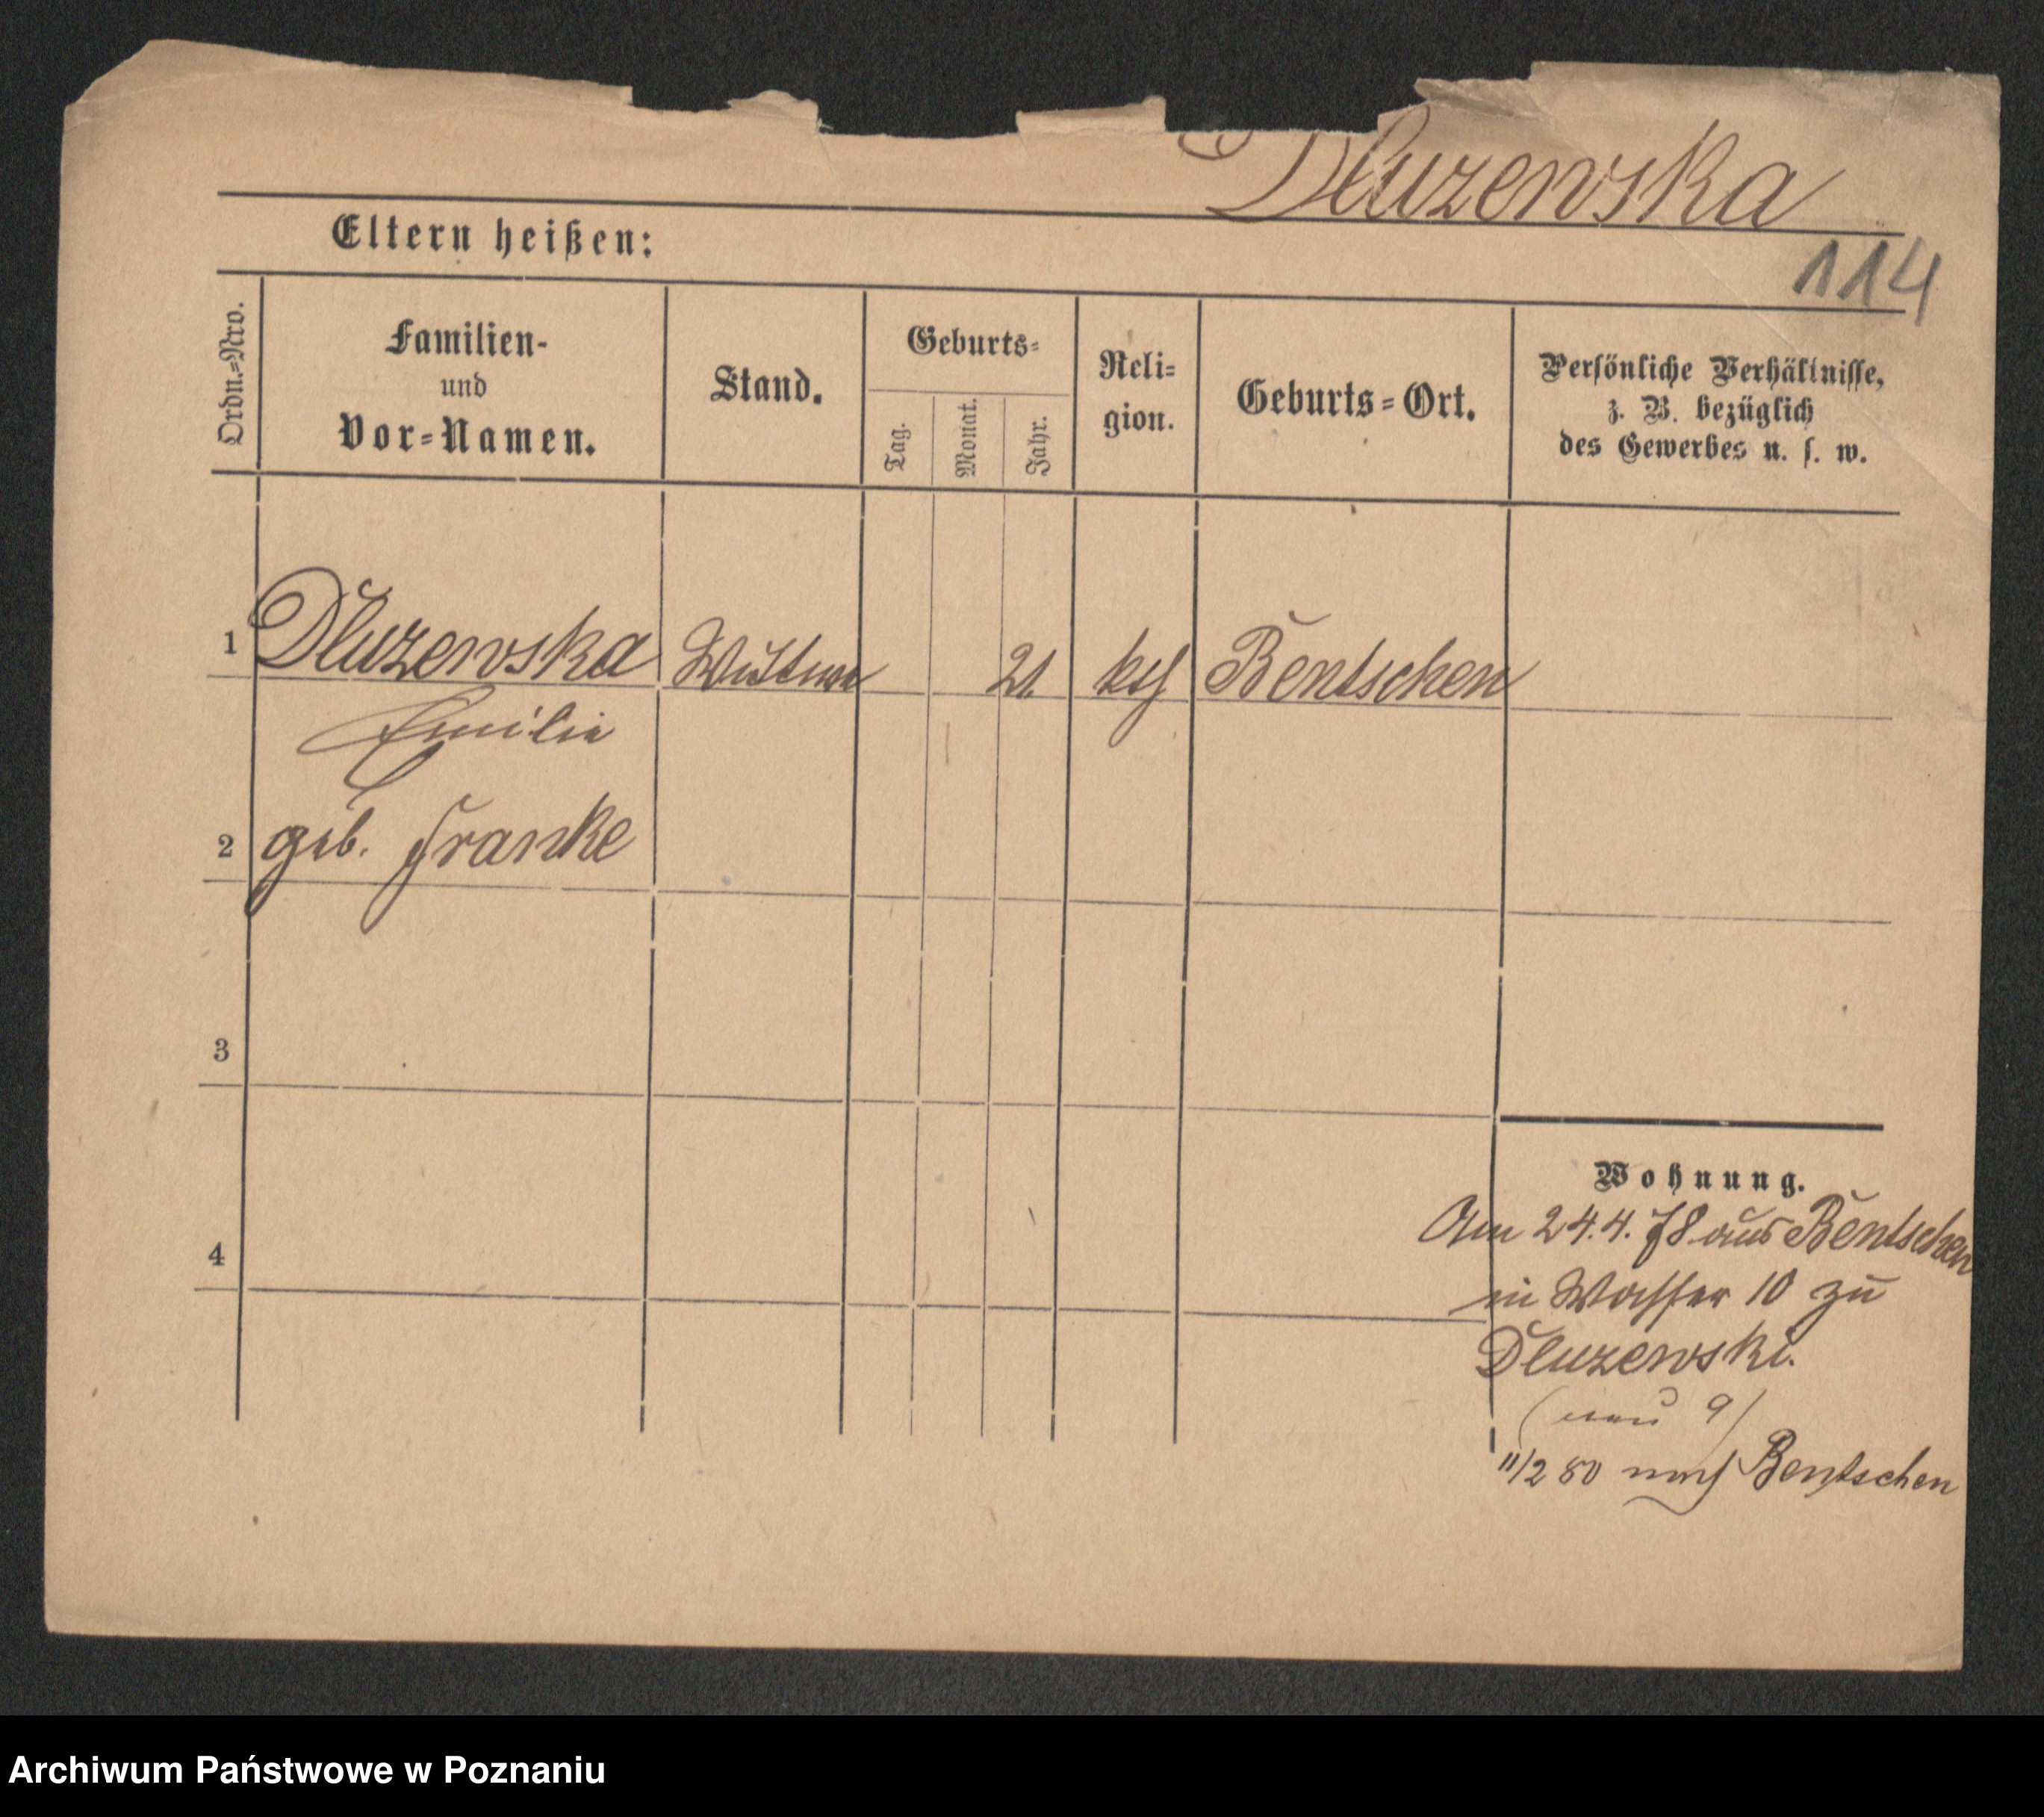 Dluzewska
Eltern heißen:
114
Ordn.=Nro.
Familien-
und
Vor=Namen.
Stand.
Geburts=
Tag.
Monat.
Jahr.
Reli=
gion.
Geburts=Ort.
Persönliche Verhältnisse,
z. B. bezüglich
des Gewerbes u. s. w.
1 Dluzewska Wittwe 21 kth Bentschen
Emilie
2 geb. Franke
3
4
Wohnung.
Am 24.4.78 aus Bentschen
in Wasser 10 zu
Dluzewski.
(neu 9)
11/2 80 nach Bentschen
Archiwum Państwowe w Poznaniu